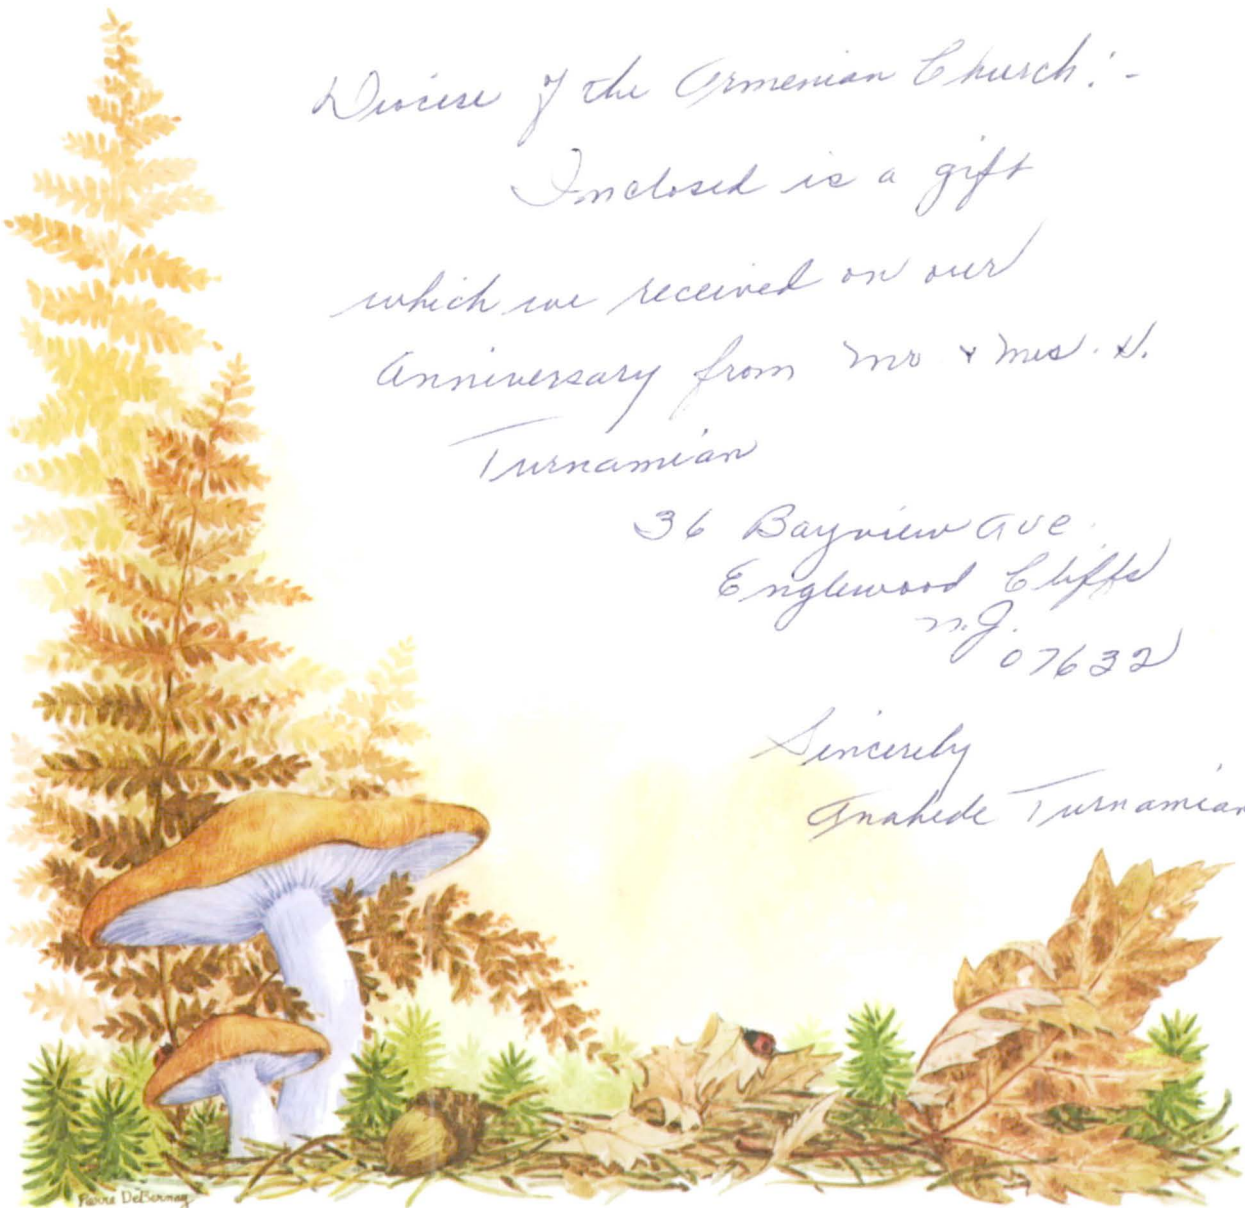 Diocese of the Armenian Church:-
Inclosed is a gift
which we received on our
Anniversary from Mr & Mrs. H.
Turnamian
36 Bayview Ave.
Englewood Cliffs
N.J.
07632
Sincerely
Anahede Turnamian
Pierre DeBernay